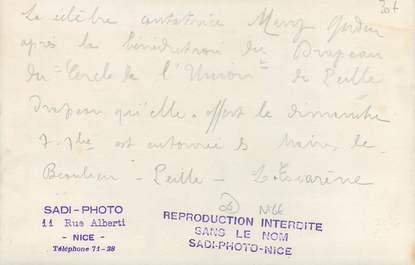 307
La célèbre cantatrice Mary Garden
après la bénédiction du Drapeau
du Cercle de l'Union de Peille
Drapeau qu'elle offert le dimanche
7 7bre est entourée des Maires de
Beaulieu - Peille - L'Escarène
SADI-PHOTO
11 Rue Alberti
- NICE -
Téléphone 71-28
REPRODUCTION INTERDITE
SANS LE NOM
SADI-PHOTO-NICE